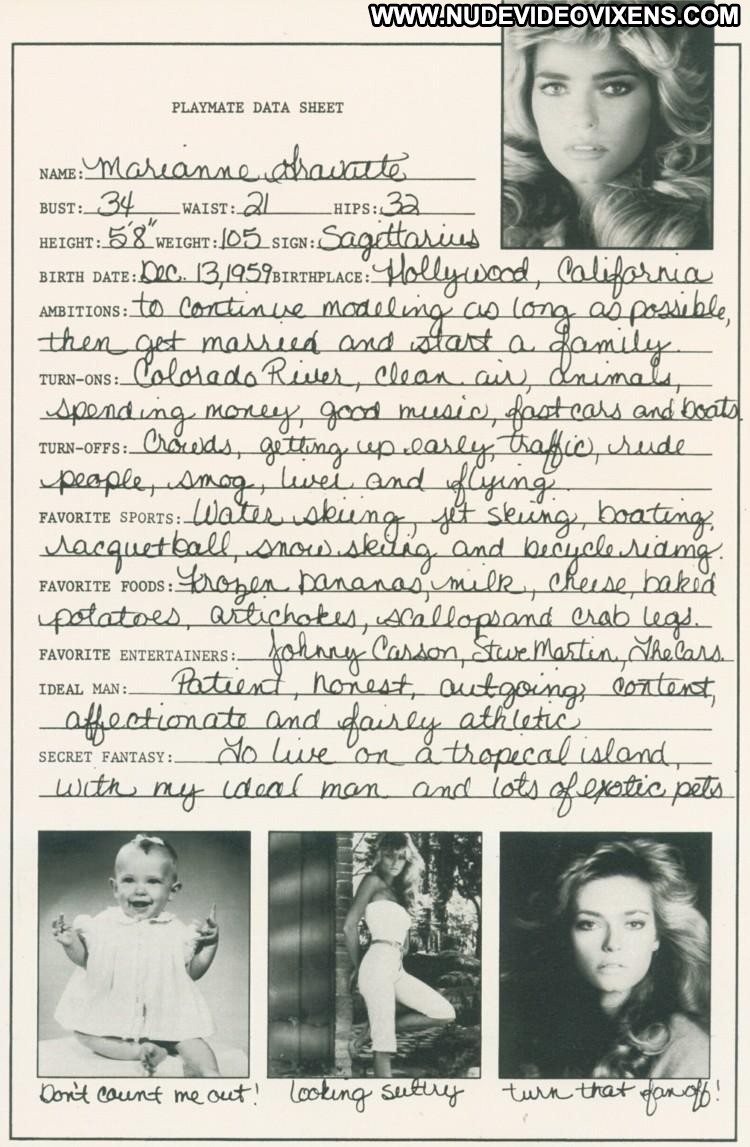 WWW.NUDEVIDEOVIXENS.COM
PLAYMATE DATA SHEET
NAME: Marianne Gravatte
BUST: 34 WAIST: 21 HIPS: 32
HEIGHT: 5'8" WEIGHT: 105 SIGN: Sagittarius
BIRTH DATE: Dec. 13, 1959 BIRTHPLACE: Hollywood, California
AMBITIONS: to continue modeling as long as possible,
then get married and start a family.
TURN-ONS: Colorado River, clean air, animals,
spending money, good music, fast cars and boats.
TURN-OFFS: Crowds, getting up early, traffic, rude
people, smog, liver and flying
FAVORITE SPORTS: Water skiing, jet skiing, boating,
racquetball, snow skiing and bicycle riding.
FAVORITE FOODS: Frozen bananas, milk, cheese, baked
potatoes, artichokes, scallops and crab legs.
FAVORITE ENTERTAINERS: Johnny Carson, Steve Martin, The Cars.
IDEAL MAN: Patient, honest, outgoing, content,
affectionate and fairly athletic
SECRET FANTASY: To live on a tropical island,
with my ideal man and lots of exotic pets
Don't count me out! looking sultry turn that fan off!